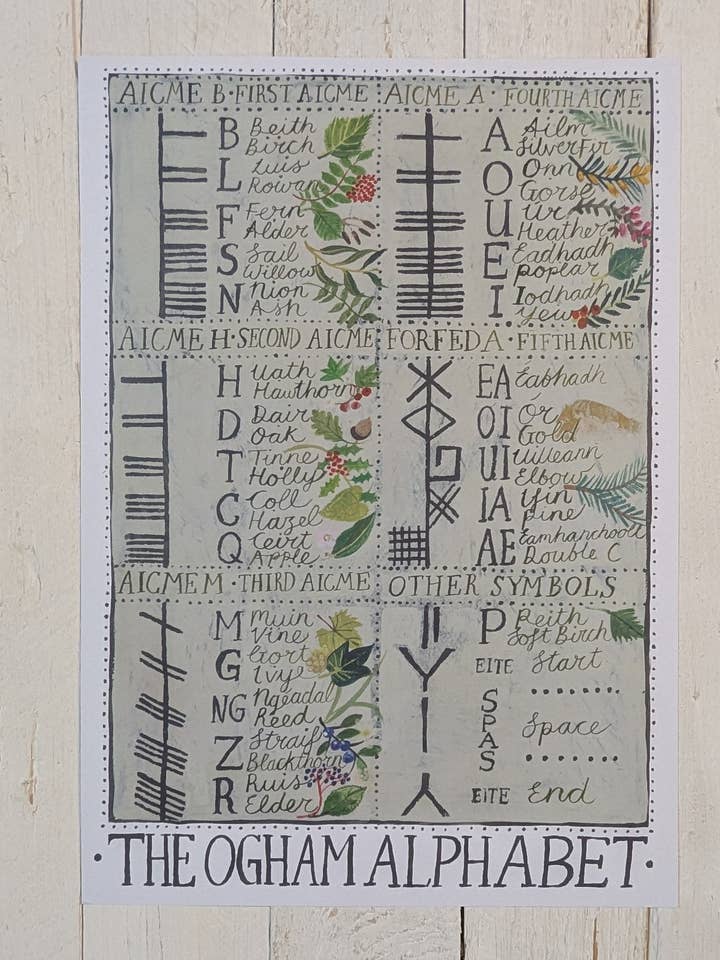 AICME B · FIRST AICME
B Beith
Birch
L Luis
Rowan
F Fern
Alder
S Sail
Willow
N Nion
Ash
AICME A · FOURTH AICME
A Ailm
Silver Fir
O Onn
Gorse
U Ur
Heather
E Eadhadh
Poplar
I Iodhadh
Yew
AICME H · SECOND AICME
H Uath
Hawthorn
D Dair
Oak
T Tinne
Holly
C Coll
Hazel
Q Ceirt
Apple
FORFEDA · FIFTH AICME
EA Eabhadh
OI Ór
Gold
UI Uilleann
Elbow
IA Ifin
Pine
AE Eamhancholl
Double C
AICME M · THIRD AICME
M Muin
Vine
G Gort
Ivy
NG Ngeadal
Reed
Z Straif
Blackthorn
R Ruis
Elder
OTHER SYMBOLS
P Peith
Soft Birch
EITE Start
SPAS Space
EITE End
· THE OGHAM ALPHABET ·